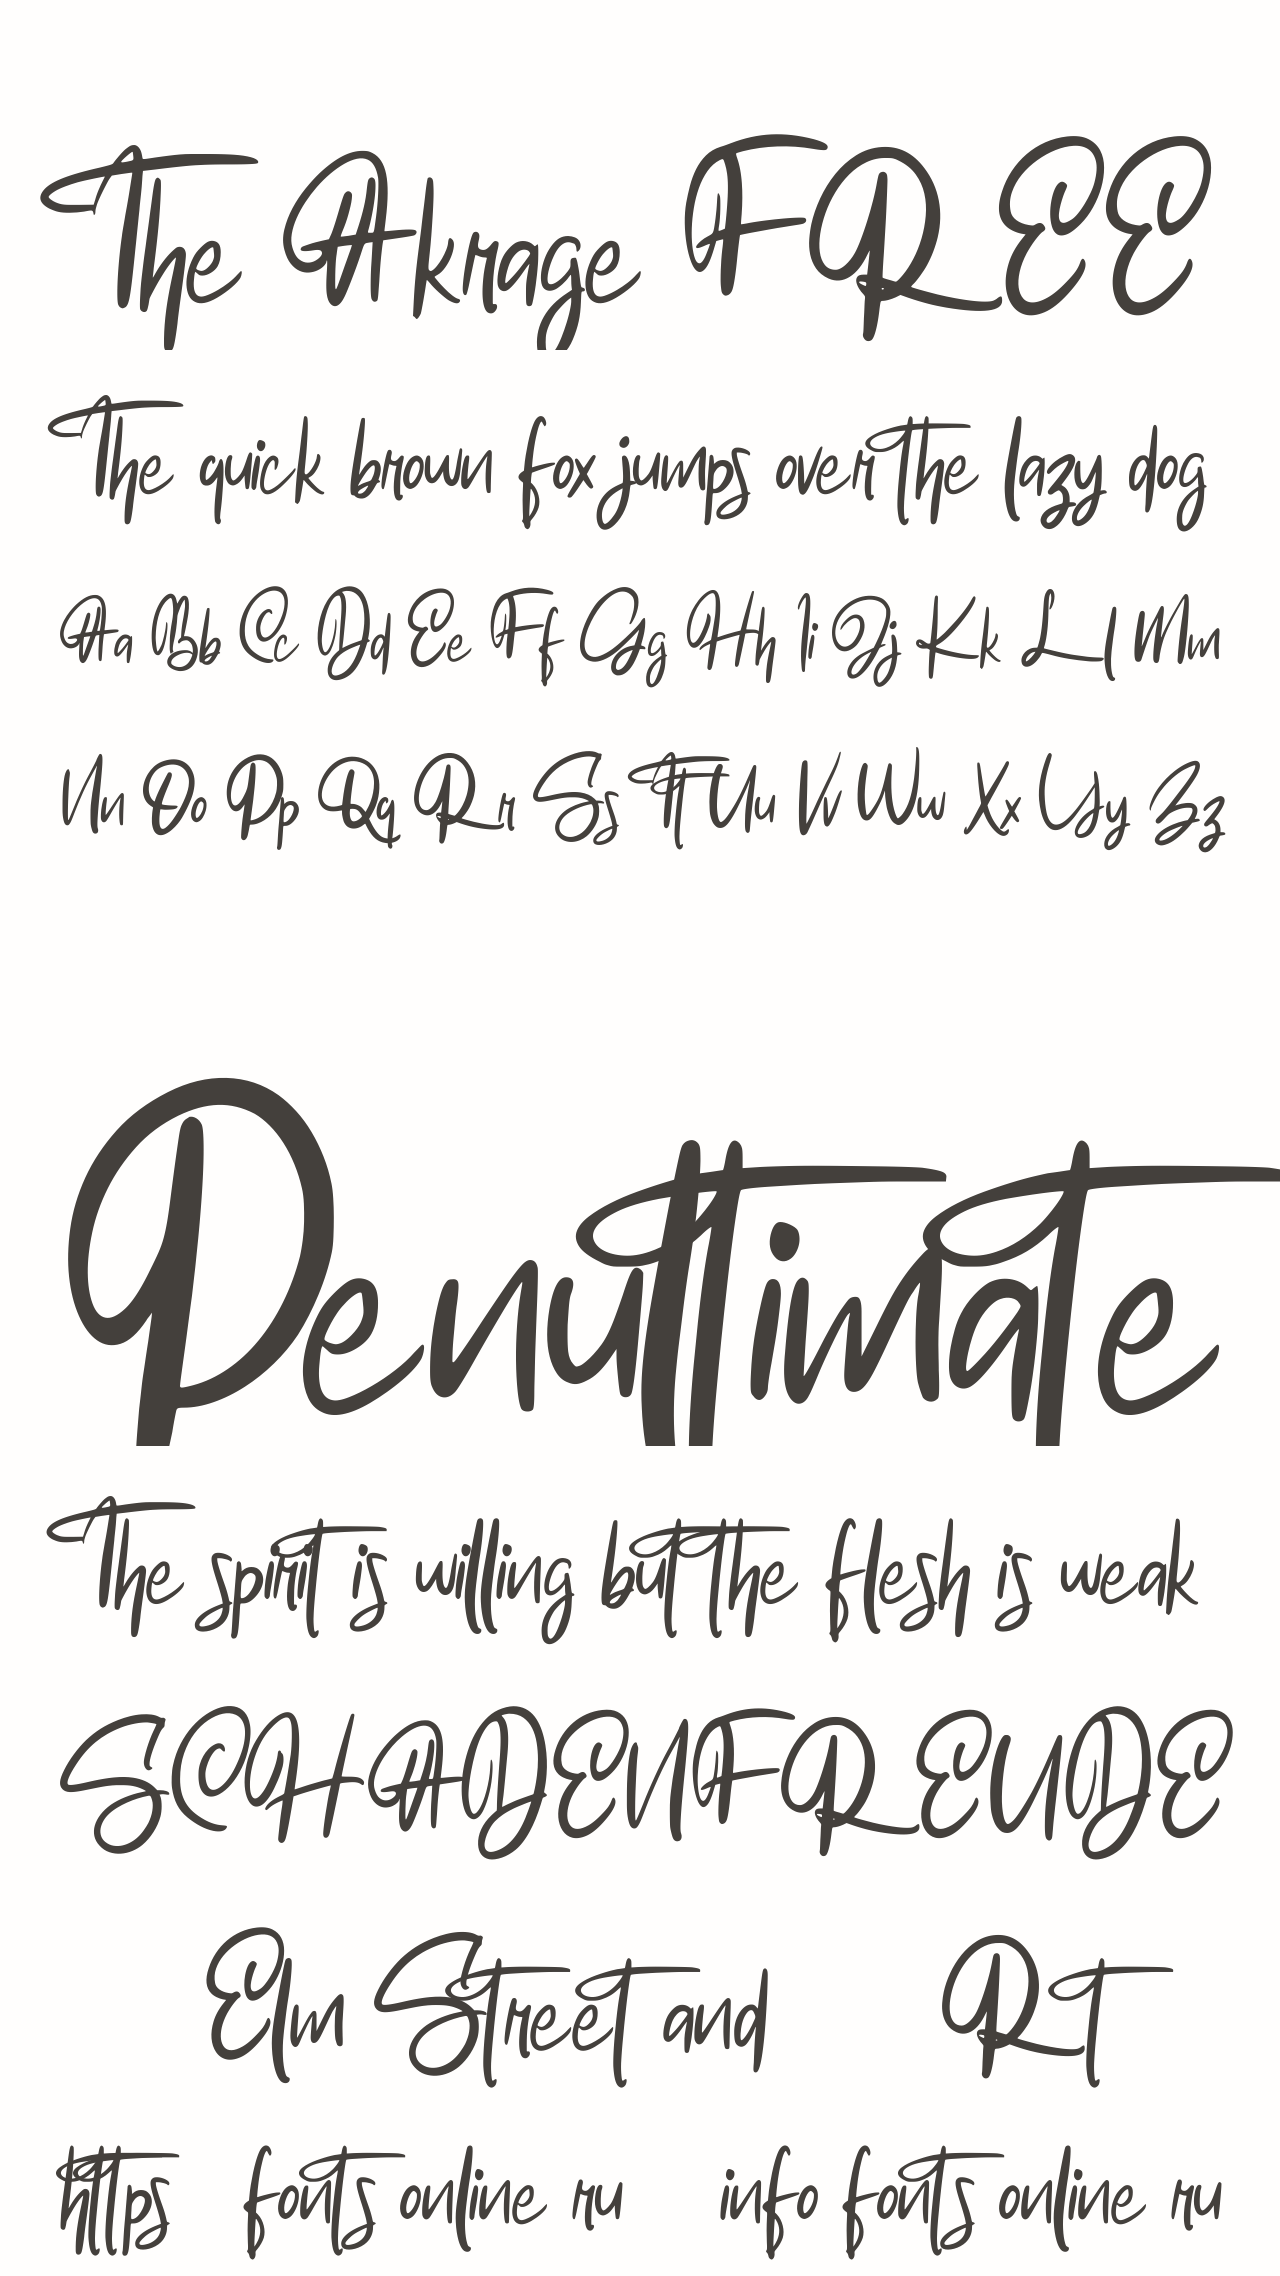 The Akrage FREE
The quick brown fox jumps over the lazy dog
Aa Bb Cc Dd Ee Ff Gg Hh Ii Jj Kk Ll Mm
Nn Oo Pp Qq Rr Ss Tt Uu Vv Ww Xx Yy Zz
Penultimate
The spirit is willing but the flesh is weak
SCHADENFREUDE
Elm Street and Rt
https fonts online ru info fonts online ru